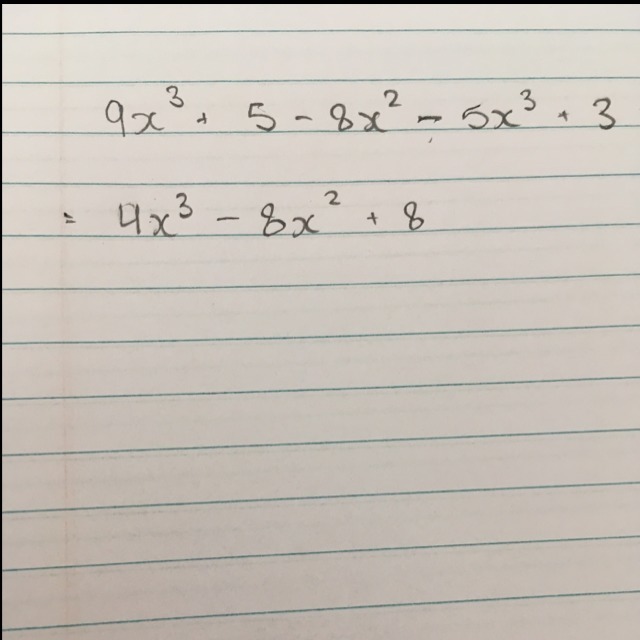 9x³ + 5 - 8x² - 5x³ + 3
= 4x³ - 8x² + 8